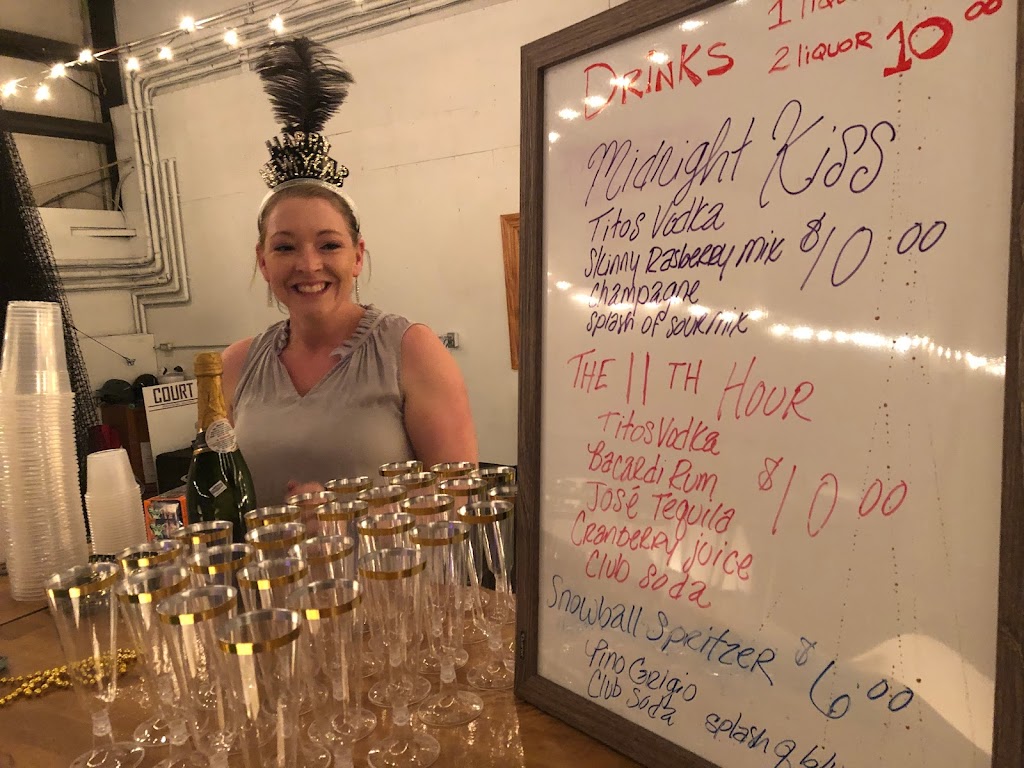 HAPPY
NEW YEAR
COURT
1 liquor
DRINKS 2 liquor 10 00
Midnight Kiss
Titos Vodka
Skinny Rasberry mix $10 00
Champagne
Splash of sour mix
THE 11TH HOUR
Titos Vodka
Bacardi Rum
José Tequila $10 00
Cranberry juice
Club Soda
Snowball Spritzer $6 00
Pino Grigio
Club Soda splash of